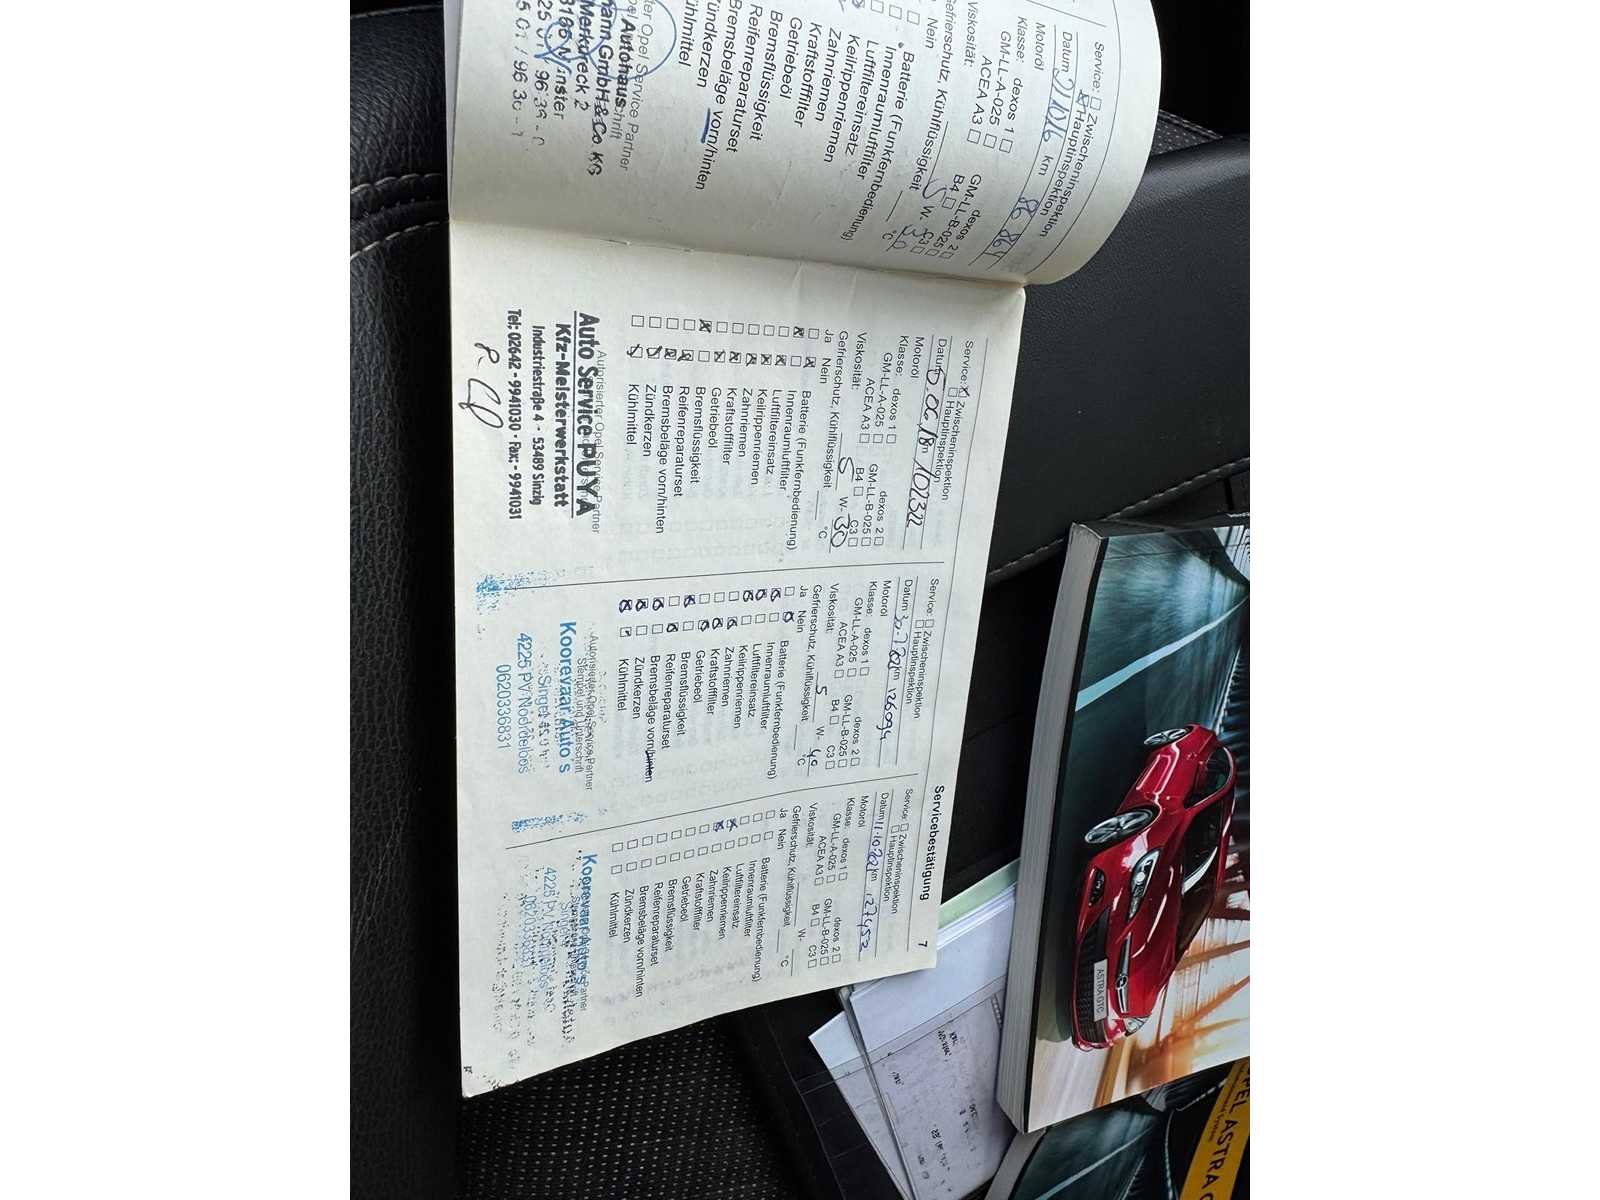 Service: Zwischeninspektion
Hauptinspektion
Datum km 86 864
Motoröl
Klasse: dexos 1 dexos 2
GM-LL-A-025 GM-LL-B-025
ACEA A3 B4 C3
Viskosität: 5 W- 30
Gefrierschutz, Kühlflüssigkeit °C
Nein
Batterie (Funkfernbedienung)
Innenraumluftfilter
Luftfiltereinsatz
Keilrippenriemen
Zahnriemen
Kraftstofffilter
Getriebeöl
Bremsflüssigkeit
Reifenreparaturset
Bremsbeläge vorn/hinten
Zündkerzen
Kühlmittel
Opel Service Partner
Autohaus
GmbH & Co. KG
Merkureck 2
Servicebestätigung 7
Service: Zwischeninspektion
Hauptinspektion
Datum km 102322
Motoröl
Klasse: dexos 1 dexos 2
GM-LL-A-025 GM-LL-B-025
ACEA A3 B4 C3
Viskosität: 5 W- 30
Gefrierschutz, Kühlflüssigkeit °C
Ja Nein
Batterie (Funkfernbedienung)
Innenraumluftfilter
Luftfiltereinsatz
Keilrippenriemen
Zahnriemen
Kraftstofffilter
Getriebeöl
Bremsflüssigkeit
Reifenreparaturset
Bremsbeläge vorn/hinten
Zündkerzen
Kühlmittel
Autorisierter Opel Service Partner
Auto Service PUYA
Kfz-Meisterwerkstatt
Industriestraße 4 · 53489 Sinzig
Tel: 02642 - 9941030 · Fax: - 9941031
Service: Zwischeninspektion
Hauptinspektion
Datum km 126094
Motoröl
Klasse: dexos 1 dexos 2
GM-LL-A-025 GM-LL-B-025
ACEA A3 B4 C3
Viskosität: 5 W- 40
Gefrierschutz, Kühlflüssigkeit °C
Ja Nein
Batterie (Funkfernbedienung)
Innenraumluftfilter
Luftfiltereinsatz
Keilrippenriemen
Zahnriemen
Kraftstofffilter
Getriebeöl
Bremsflüssigkeit
Reifenreparaturset
Bremsbeläge vorn/hinten
Zündkerzen
Kühlmittel
Autorisierter Opel Service Partner
Stempel und Unterschrift
Koorevaar Auto's
Singel
4225 PV Noordeloos
0620336831
Service: Zwischeninspektion
Hauptinspektion
Datum 11-10-2021 km 127452
Motoröl
Klasse: dexos 1 dexos 2
GM-LL-A-025 GM-LL-B-025
ACEA A3 B4 C3
Viskosität: W-
Gefrierschutz, Kühlflüssigkeit °C
Ja Nein
Batterie (Funkfernbedienung)
Innenraumluftfilter
Luftfiltereinsatz
Keilrippenriemen
Zahnriemen
Kraftstofffilter
Getriebeöl
Bremsflüssigkeit
Reifenreparaturset
Bremsbeläge vorn/hinten
Zündkerzen
Kühlmittel
Koorevaar Auto's
4225 PV Noordeloos
0620336831
ASTRA GTC
OPEL ASTRA